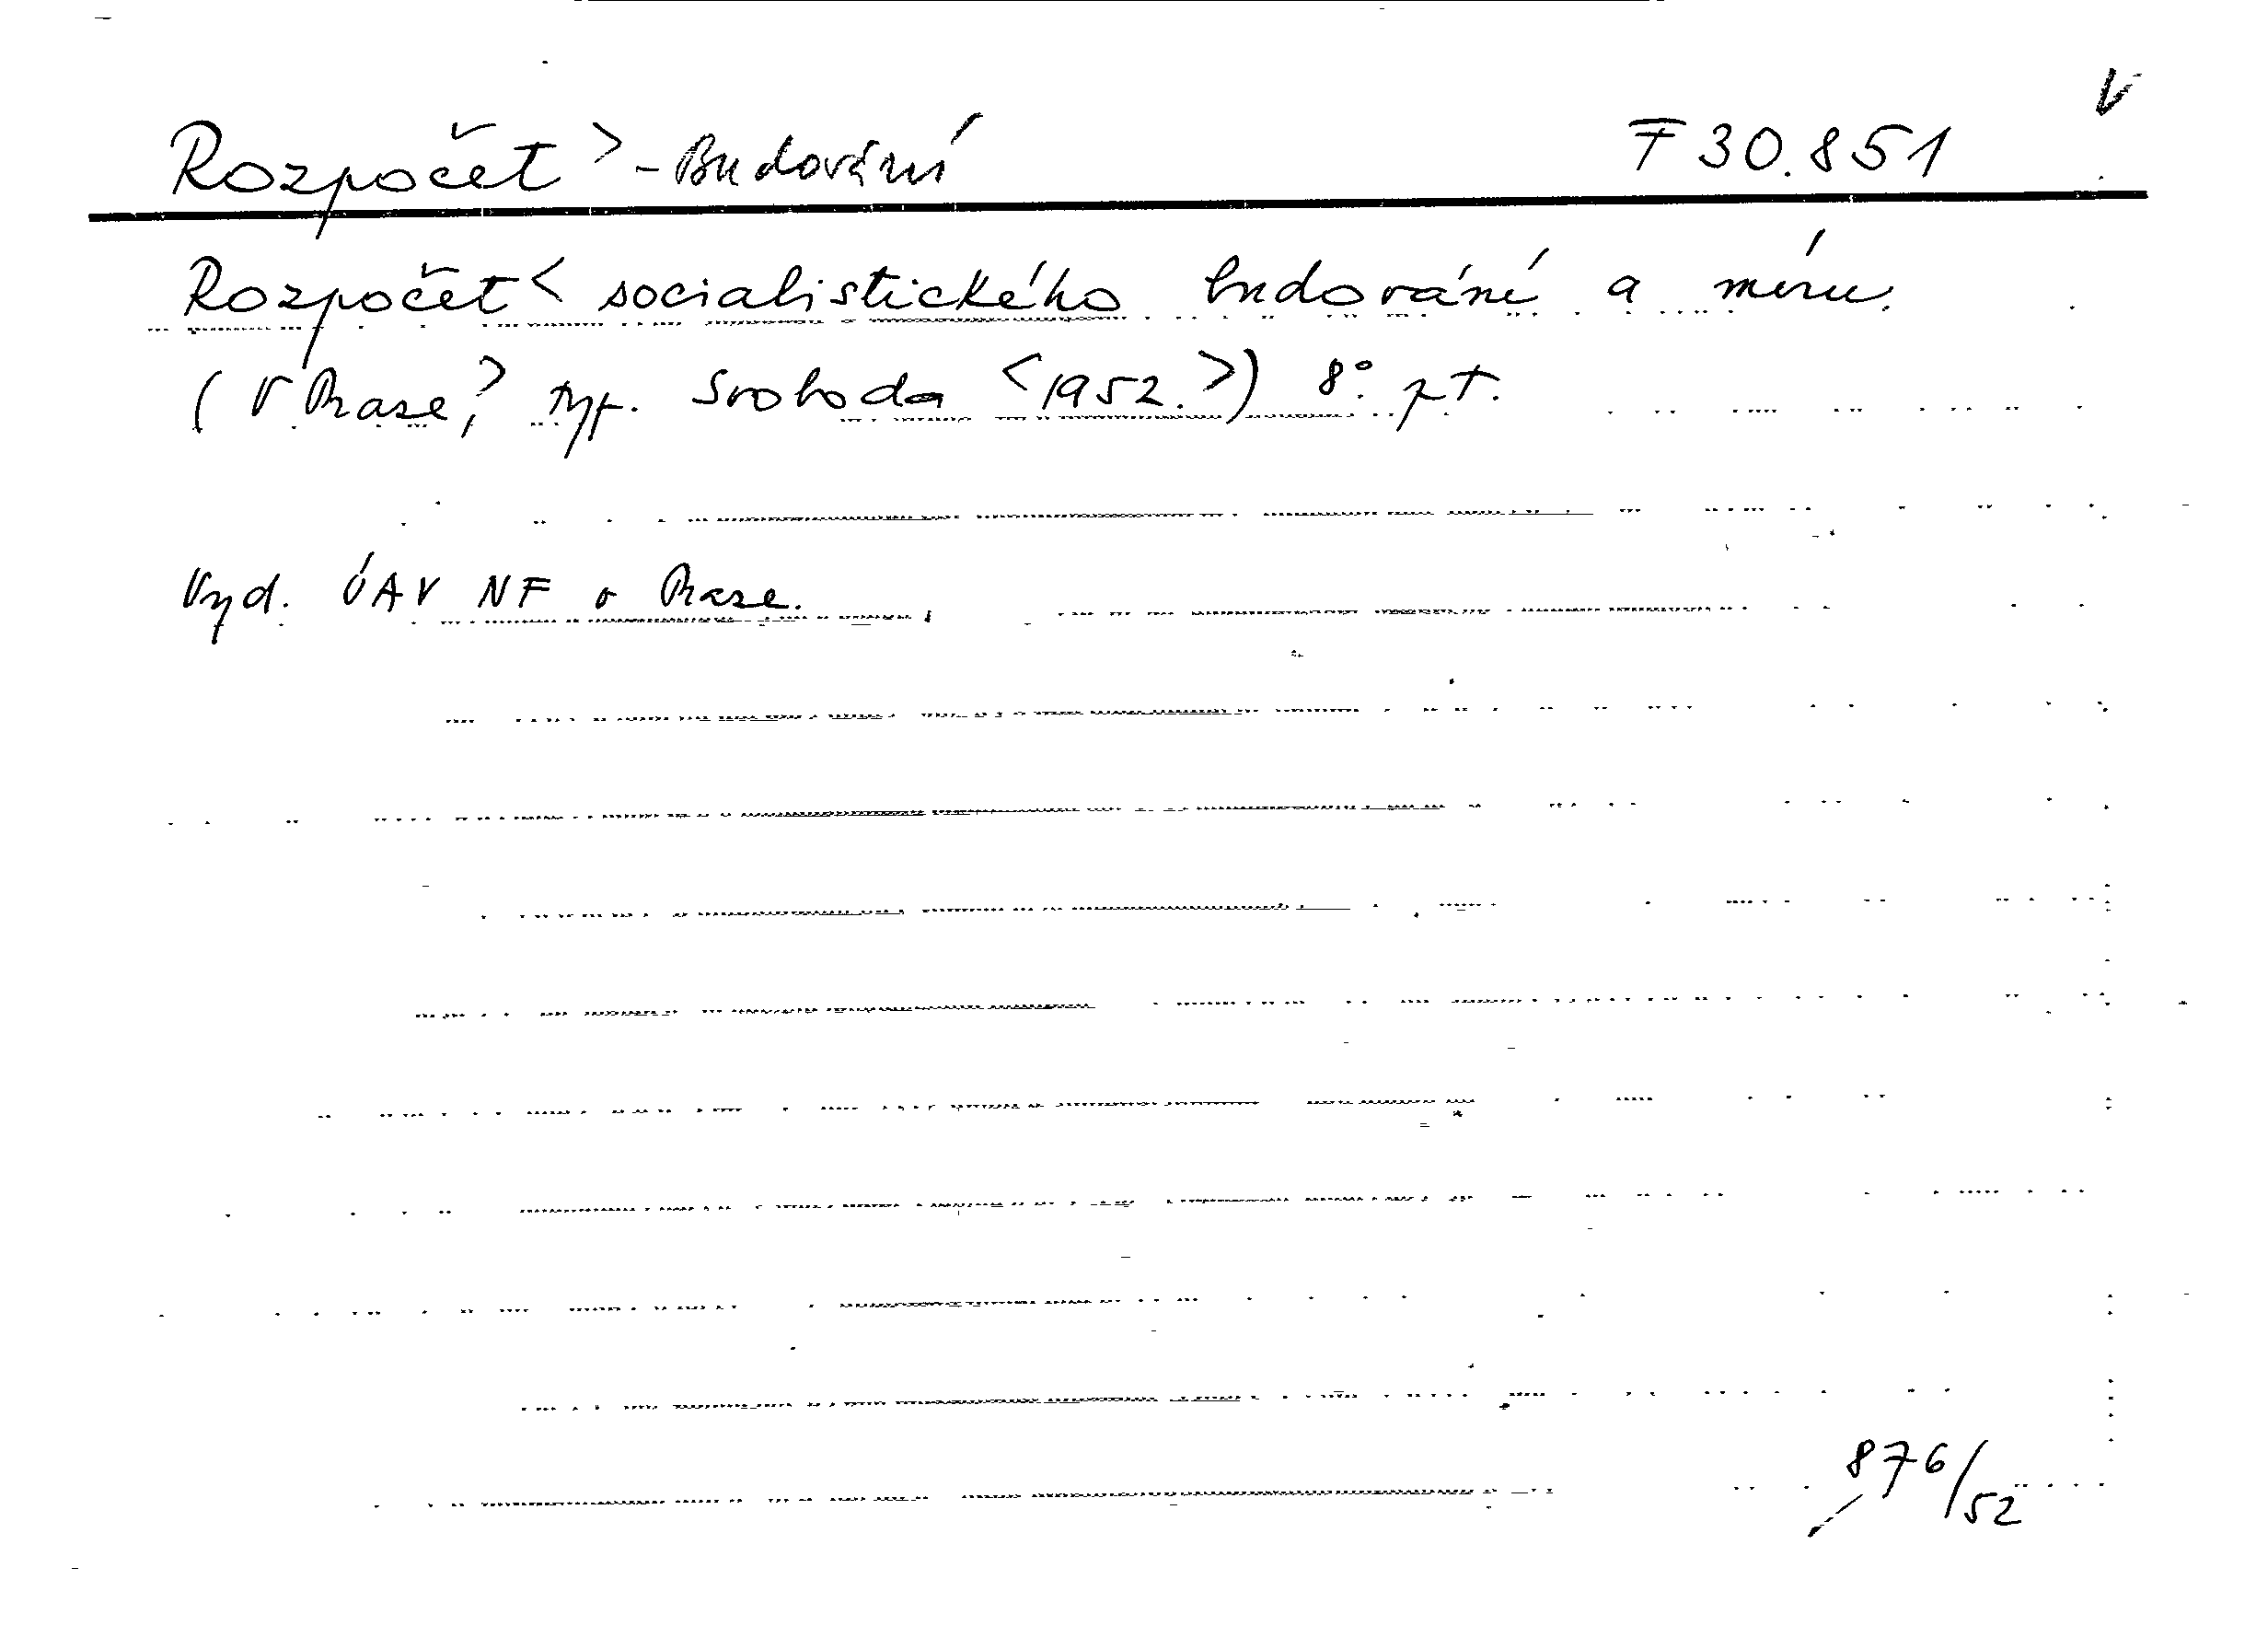 V
Rozpočet > - Budování F 30.851
Rozpočet < socialistického budování a míru.
(V Praze,> typ. Svoboda <1952.>) 8°. pt.
Vyd. ÚAV NF v Praze.
876/52